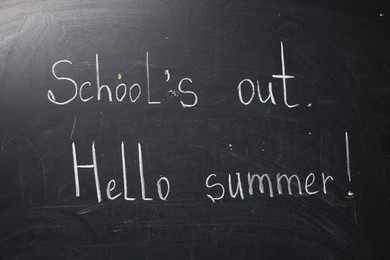 School's out.
Hello summer!